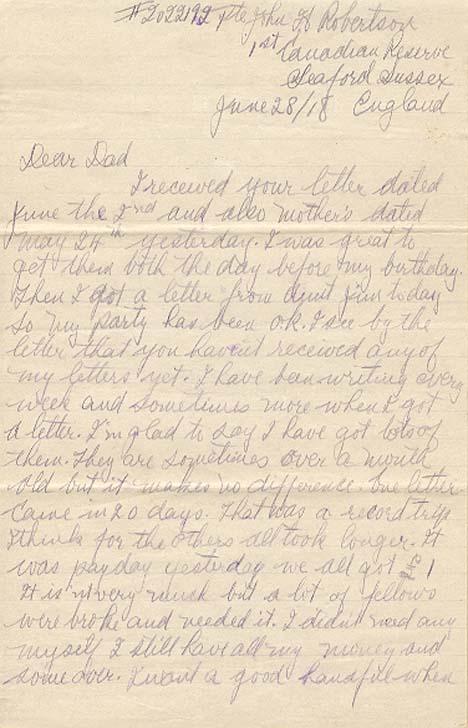 #2022192 Pte John H Robertson
1st Canadian Reserve
Seaford Sussex
June 28/18 England
Dear Dad
I received your letter dated
June the 2nd and also mother's dated
May 24th yesterday. I was great to
get them both the day before my birthday.
Then I got a letter from Aunt Jim today
so my party has been o.k. I see by the
letter that you haven't received any of
my letters yet. I have been writing every
week and sometimes more when I got
a letter. I'm glad to say I have got lots of
them. They are sometimes over a month
old but it makes no difference. One letter
came in 20 days. That was a record trip
I think for the others all took longer. It
was payday yesterday we all got 1
It isn't very much but a lot of fellows
were broke and needed it. I didn't need any
myself I still have all my money and
some over. I want a good handful when